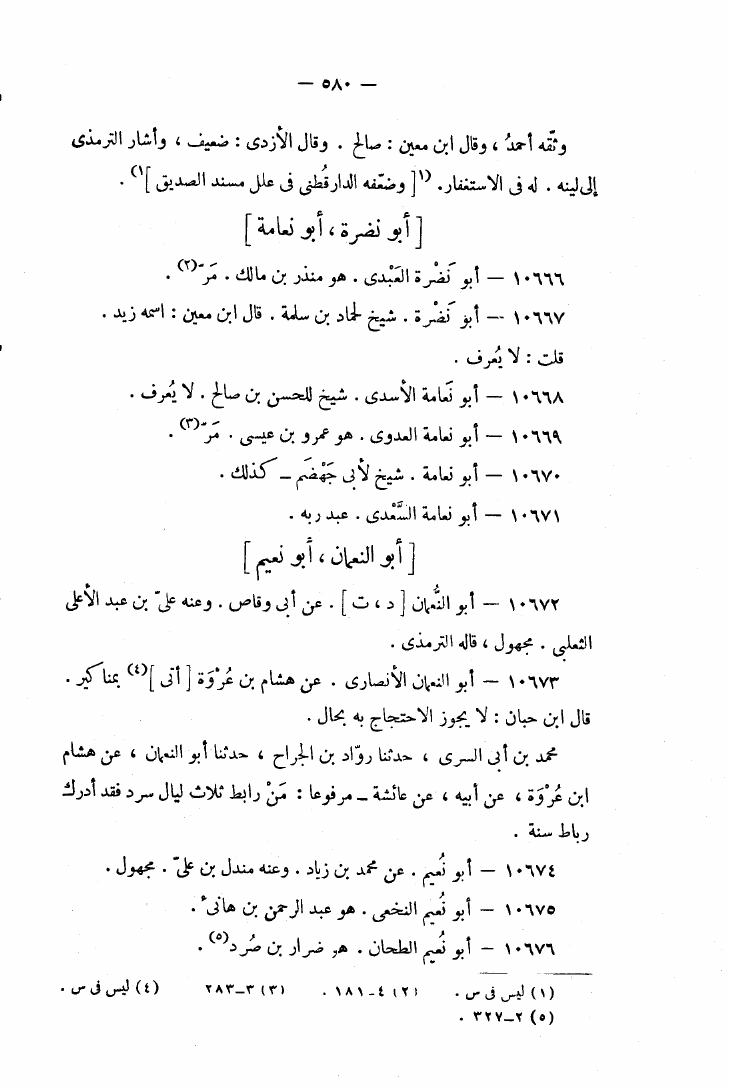 — ٥٨٠ —
وثّقه أحمدُ ، وقال ابن معين : صالح . وقال الأزدى : ضعيف ، وأشار الترمذى
إلى لينه . له فى الاستغفار. (١[ وضعّفه الدارقُطنى فى علل مسند الصديق ]١) .
[ أبو نضرة ، أبو نعامة ]
١٠٦٦٦ — أبو نَضْرة العَبْدى . هو منذر بن مالك . مَرّ(٢) .
١٠٦٦٧ — أبو نَضْرة . شيخ لحماد بن سلمة . قال ابن معين : اسمه زيد .
قلت : لا يُعرف .
١٠٦٦٨ — أبو نَعامة الأسدى . شيخ للحسن بن صالح . لا يُعرف .
١٠٦٦٩ — أبو نعامة العدوى . هو عمرو بن عيسى . مَرّ(٣) .
١٠٦٧٠ — أبو نعامة . شيخ لأبى جَهْضَم — كذلك .
١٠٦٧١ — أبو نعامة السَّعْدى . عبد ربه .
[ أبو النعمان ، أبو نعيم ]
١٠٦٧٢ — أبو النُّعمان [ د ، ت ] . عن أبى وقاص . وعنه علىّ بن عبد الأعلى
الثعلبى . مجهول ، قاله الترمذى .
١٠٦٧٣ — أبو النعمان الأنصارى . عن هشام بن عُرْوَة [ أتى ](٤) بمناكير .
قال ابن حبان : لا يجوز الاحتجاج به بحال .
محمد بن أبى السرى ، حدثنا روّاد بن الجراح ، حدثنا أبو النعمان ، عن هشام
ابن عُرْوَة ، عن أبيه ، عن عائشة — مرفوعا : مَنْ رابط ثلاث ليال سرد فقد أدرك
رباط سنة .
١٠٦٧٤ — أبو نُعيم . عن محمد بن زياد . وعنه مندل بن علىّ . مجهول .
١٠٦٧٥ — أبو نُعيم النخعى . هو عبد الرحمن بن هانىء .
١٠٦٧٦ — أبو نُعيم الطحان . هو ضرار بن صُرد(٥) .
(١) ليس فى س . (٢) ٤-١٨١ . (٣) ٣-٢٨٣ (٤) ليس فى س .
(٥) ٢-٣٢٧ .